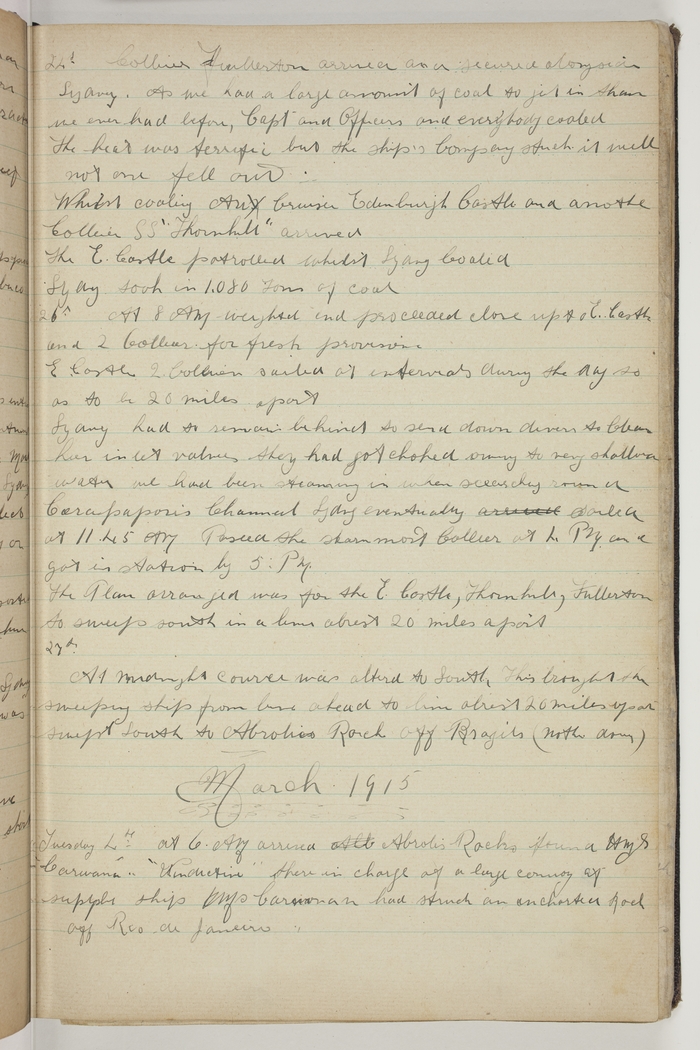 24th Collier Fullerton arrived and secured alongside
Sydney. As we had a large amount of coal to get in than
we ever had before, Capt and Officers and everybody coaled
The heat was terrific but the ship's Company stuck it well
not one fell out.
Whilst coaling Aux Cruiser Edenburgh Castle and anothe
Collier SS "Thornhill" arrived
The E. Castle patrolled whilst Sydney Coaled
Sydny took in 1.080 Tons of coal
26th At 8 AM weighted and proceeded close up to E. Castle
and 2 Collier for fresh provision
E Castle 2 Colliers sailed at intervals during the day so
as to be 20 miles apart
Sydney had to remain behind to send down divers to Clean
her inlet valves they had got choked owing to very shallow
water we had been steaming in when searching round
Carapaparis Channel Sydny eventually arrived sailed
at 11.45 AM Passed the sternmost Collier at 4 PM and
got in station by 5: PM.
The Plan arranged was for the E. Castle, Thornhill, Fullerton
to sweep south in a line abrest 20 miles apart
27th
At midnight course was alterd to South This brought the
sweeping ship from line ahead to line abrest 20 miles apart
swept South to Abrolios Rock off Brazils
March 1915
Tuesday 4th at 6. AM arrived Abrolis Rocks found HMS
"Carmania". "Vindictive" there in charge of a large convoy of
supply ships HMS Carmanan had struck an uncharted Rock
off Rio de Janeiro